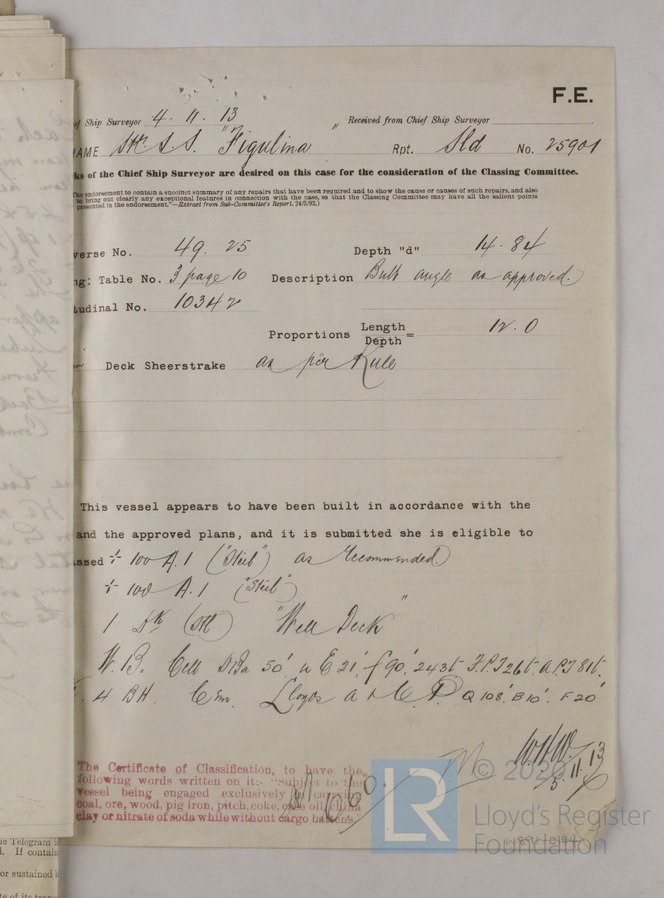 F.E.
ef Ship Surveyor 4. 11. 13 " Received from Chief Ship Surveyor
AME Stl S.S. "Figulina Rpt. Sld No. 25901
ks of the Chief Ship Surveyor are desired on this case for the consideration of the Classing Committee.
The endorsement to contain a succinct summary of any repairs that have been required and to show the cause or causes of such repairs, and also
to bring out clearly any exceptional features in connection with the case, so that the Classing Committee may have all the salient points
presented in the endorsement."—Extract from Sub-Committee's Report.
verse No. 49.25 Depth "d" 14.84
ng: Table No. 3 page 10 Description Bulb angle as approved.
tudinal No. 10342
Proportions Length
Depth = 12.0
Deck Sheerstrake as per Rule
This vessel appears to have been built in accordance with the
and the approved plans, and it is submitted she is eligible to
ssed ÷ 100 A.1 ("Steel") as recommended.
÷ 100 A.1 (Steel")
1 Dk (Stl) "Well Deck"
W.B. Cell D.Ba 50' u E 21' f 90' 243t F.P.T 26t A.P.T 81t.
4 BH. Cem. Lloyds A & C.P. Q 108' B 10' F 20'
The Certificate of Classification, to have the
following words written on it:- "Subject to the
vessel being engaged exclusively
coal, ore, wood, pig iron, pitch, coke, oil, china
clay or nitrate of soda while without cargo battens."
5.11.13
© 2020
LR
Lloyd's Register
Foundation
he Telegram is
d. If contain
or sustained b
te of its tran